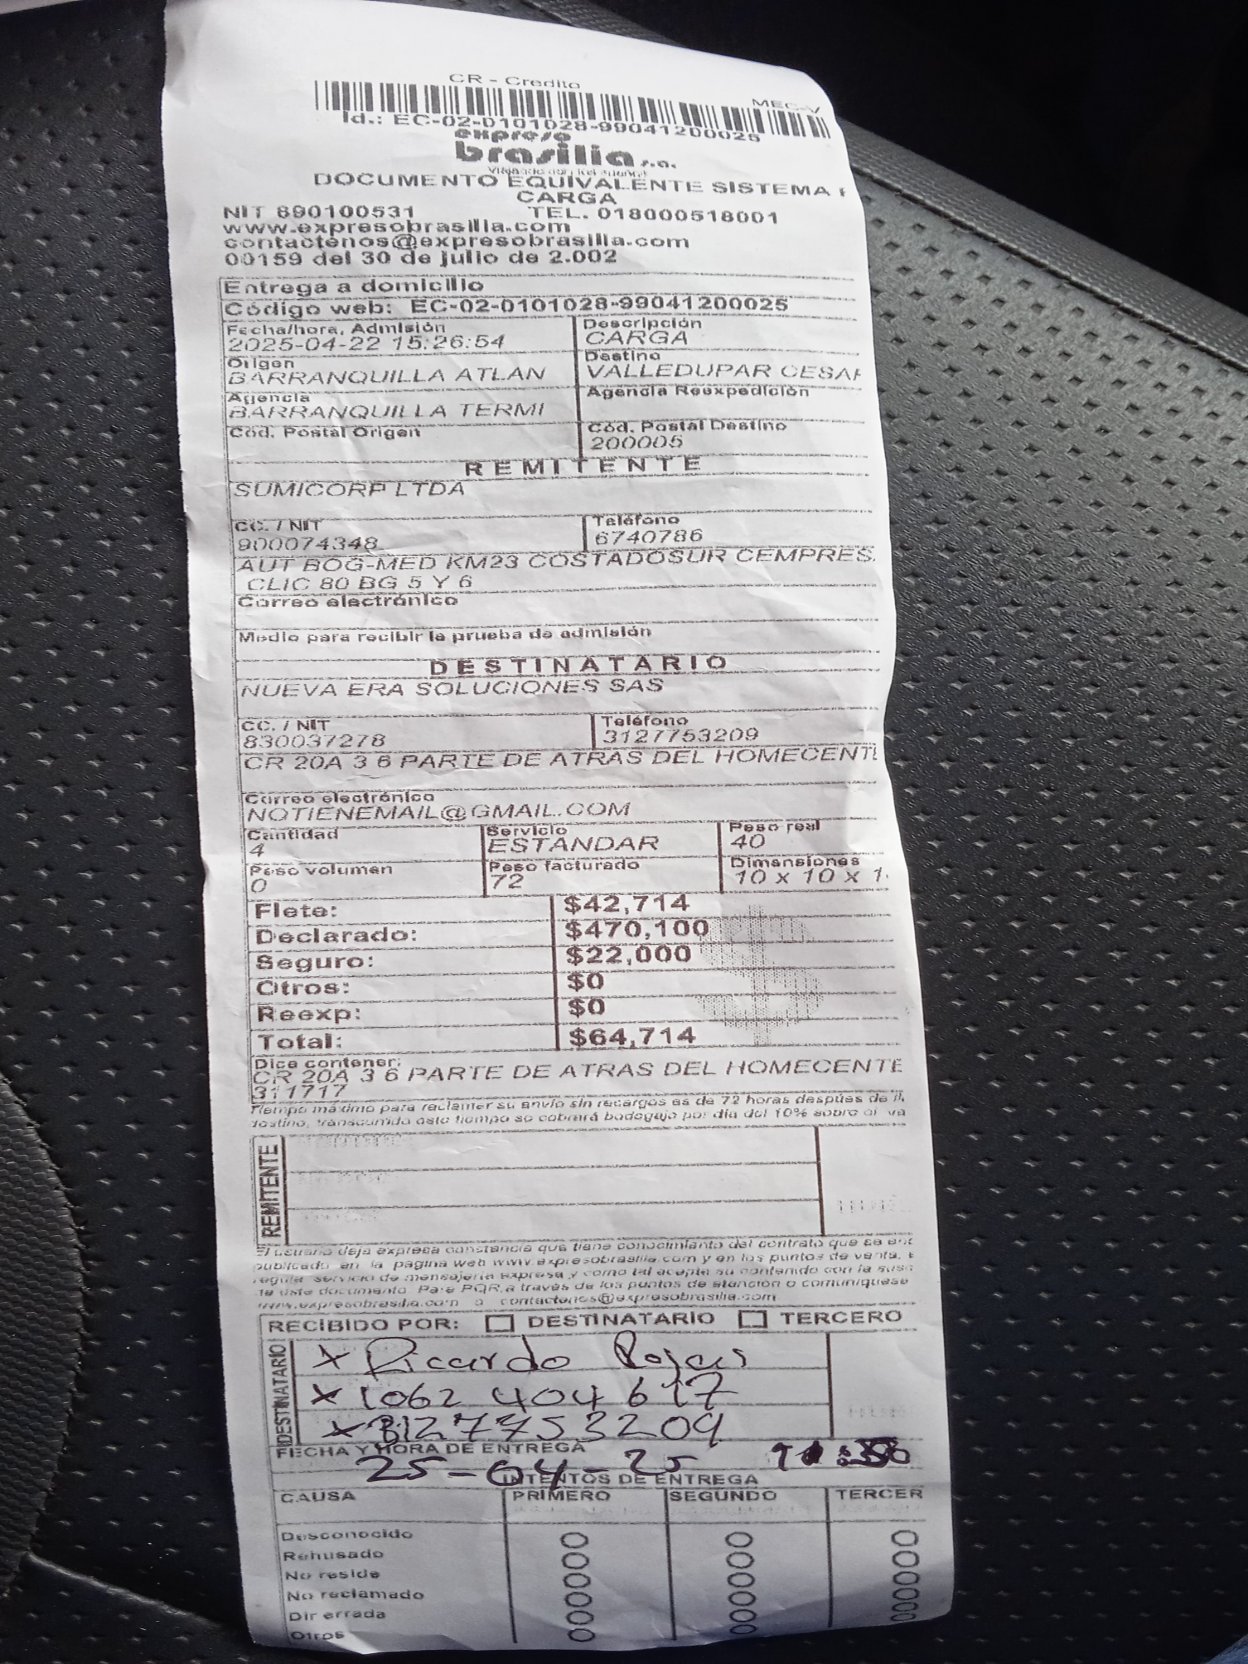 CR - Credito
MEC-V
Id.: EC-02-0101028-99041200025
expreso
brasilia s.a.
DOCUMENTO EQUIVALENTE SISTEMA
CARGA
NIT 890100531 TEL. 018000518001
www.expresobrasilia.com
contactenos@expresobrasilia.com
00159 del 30 de julio de 2.002
Entrega a domicilio
Código web: EC-02-0101028-99041200025
Fecha/hora, Admisión Descripción
2025-04-22 15:26:54 CARGA
Origen Destino
BARRANQUILLA ATLAN VALLEDUPAR CESAR
Agencia Agencia Reexpedición
BARRANQUILLA TERMI
Cód. Postal Origen Cód. Postal Destino
200005
REMITENTE
SUMICORP LTDA
CC. / NIT Teléfono
900074348 6740786
AUT BOG-MED KM23 COSTADOSUR CEMPRES.
CLIC 80 BG 5 Y 6
Correo electrónico
Medio para recibir la prueba de admisión
DESTINATARIO
NUEVA ERA SOLUCIONES SAS
CC. / NIT Teléfono
830037278 3127753209
CR 20A 3 6 PARTE DE ATRAS DEL HOMECENTE
Correo electrónico
NOTIENEMAIL@GMAIL.COM
Cantidad Servicio Peso real
4 ESTANDAR 40
Peso volumen Peso facturado Dimensiones
0 72 10 x 10 x 1
Flete: $42,714
Declarado: $470,100
Seguro: $22,000
Otros: $0
Reexp: $0
Total: $64,714
Dice contener:
CR 20A 3 6 PARTE DE ATRAS DEL HOMECENTE
311717
Tiempo máximo para reclamar su envío sin recargos es de 72 horas después de
destino, transcurrido este tiempo se cobrará bodegaje por día del 10% sobre el va
REMITENTE
El usuario deja expresa constancia que tiene conocimiento del contrato que se
publicado en la página web www.expresobrasilia.com y en los puntos de venta,
regula servicio de mensajería expresa y como tal acepta su contenido con la
de este documento. Para PQR a través de los puntos de atención o comuniquese
www.expresobrasilia.com o contactenos@expresobrasilia.com
RECIBIDO POR: DESTINATARIO TERCERO
DESTINATARIO
x Ricardo Rojas
x 1062 404 617
x 3127753209
FECHA Y HORA DE ENTREGA
25-04-25
INTENTOS DE ENTREGA
CAUSA PRIMERO SEGUNDO TERCER
Desconocido
Rehusado
No reside
No reclamado
Dir errada
Otros